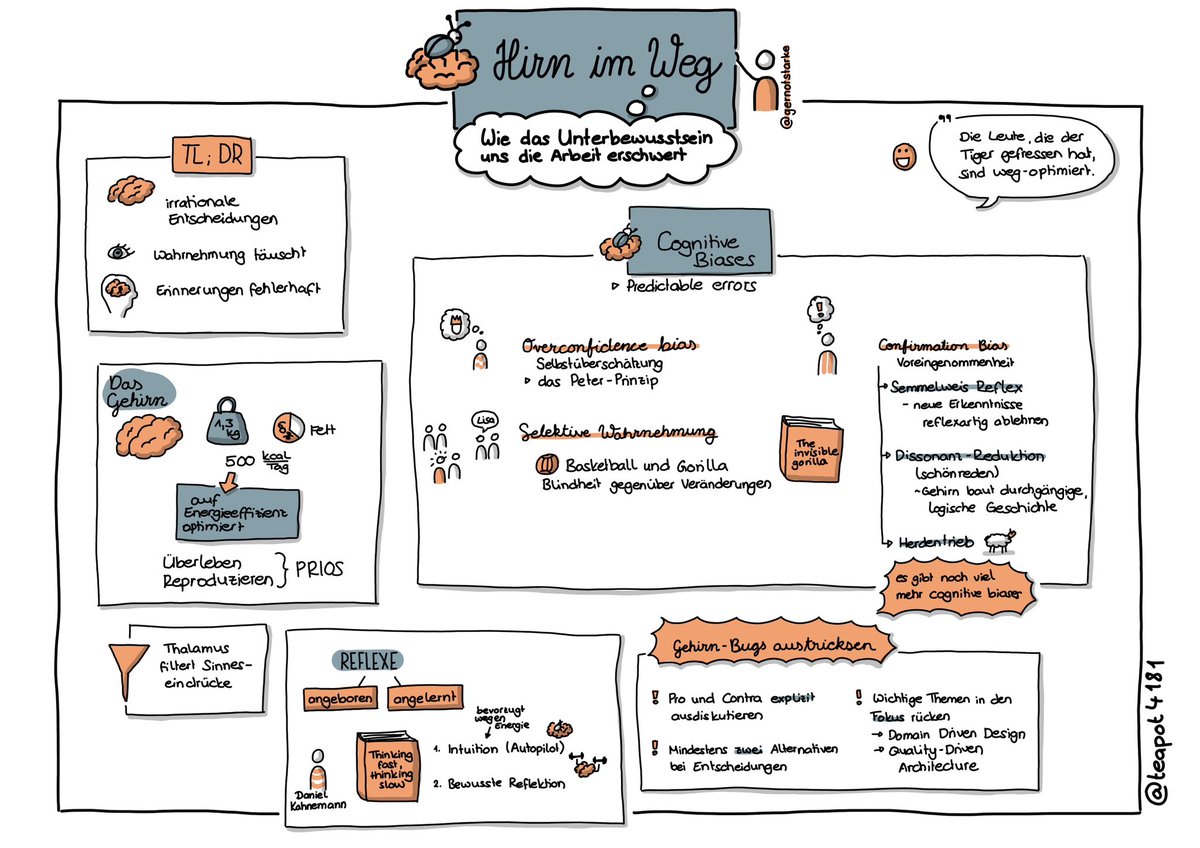 Hirn im Weg
@gernotstarke
Wie das Unterbewusstsein
uns die Arbeit erschwert
"
Die Leute, die der
Tiger gefressen hat,
sind weg-optimiert.
TL; DR
irrationale
Entscheidungen
Wahrnehmung täuscht
Erinnerungen fehlerhaft
Das
Gehirn
1,3
kg
Fett
500 kcal/Tag
auf
Energieeffizienz
optimiert
Überleben
Reproduzieren } PRIOS
Thalamus
filtert Sinnes-
eindrücke
Cognitive
Biases
▹ Predictable errors
Overconfidence bias
Selbstüberschätung
▹ das Peter-Prinzip
Lisa
Selektive Wahrnehmung
Basketball und Gorilla
Blindheit gegenüber Veränderungen
The
invisible
gorilla
!
Confirmation Bias
Voreingenommenheit
Semmelweis Reflex
- neue Erkenntnisse
reflexartig ablehnen
Dissonanz-Reduktion
(schönreden)
~Gehirn baut durchgängige,
logische Geschichte
Herdentrieb
es gibt noch viel
mehr cognitive biases
REFLEXE
angeboren
angelernt
bevorzugt
wegen
Energie
1. Intuition (Autopilot)
2. Bewusste Reflektion
Thinking
fast,
thinking
slow
Daniel
Kahnemann
Gehirn-Bugs austricksen
! Pro und Contra explizit
ausdiskutieren
! Mindestens zwei Alternativen
bei Entscheidungen
! Wichtige Themen in den
Fokus rücken
→ Domain Driven Design
→ Quality-Driven
Architecture
@teapot4181